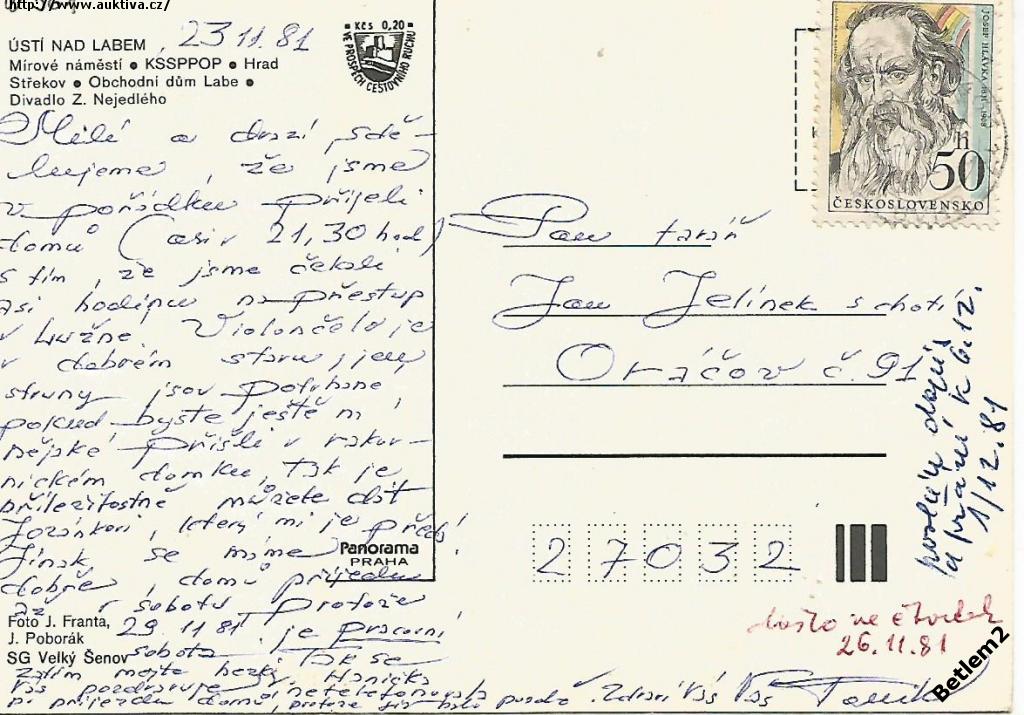 http://www.auktiva.cz/
ÚSTÍ NAD LABEM, 23 11. 81
Mírové náměstí ● KSSPPOP ● Hrad
Střekov ● Obchodní dům Labe ●
Divadlo Z. Nejedlého
KČS 0,20
VE PROSPĚCH CESTOVNÍHO RUCHU
JOSEF HLÁVKA 1831-1908
50 h
ČESKOSLOVENSKO
Milí a drazí, sdě-
lujeme, že jsme
v pořádku přijeli
domů (asi v 21,30 hod)
s tím, že jsme čekali
asi hodinu na přestup
v Lužné. Violončelo je
v dobrém stavu, jen
struny jsou potrhané
pokud byste ještě n
nějaké přišli v rakov-
nickém domku, tak je
příležitostně můžete dát
Jozánkovi, který mi je předá.
Jinak se máme
dobře, domů přijedu
až v sobotu protože
29. 11 81 je pracovní
sobota. Tak se
zatím mějte hezky. Hanička
Vás pozdravuje
po příjezdu domů, protože
Zdraví Vás Váš
Pan
Jan Jelínek s chotí
Oráčov č. 91
27032
Panorama
PRAHA
Foto J. Franta,
J. Poborák
SG Velký Šenov
přání k 6.12.
1/12.81
došlo ve čtvrtek
26.11.81
Betlem2